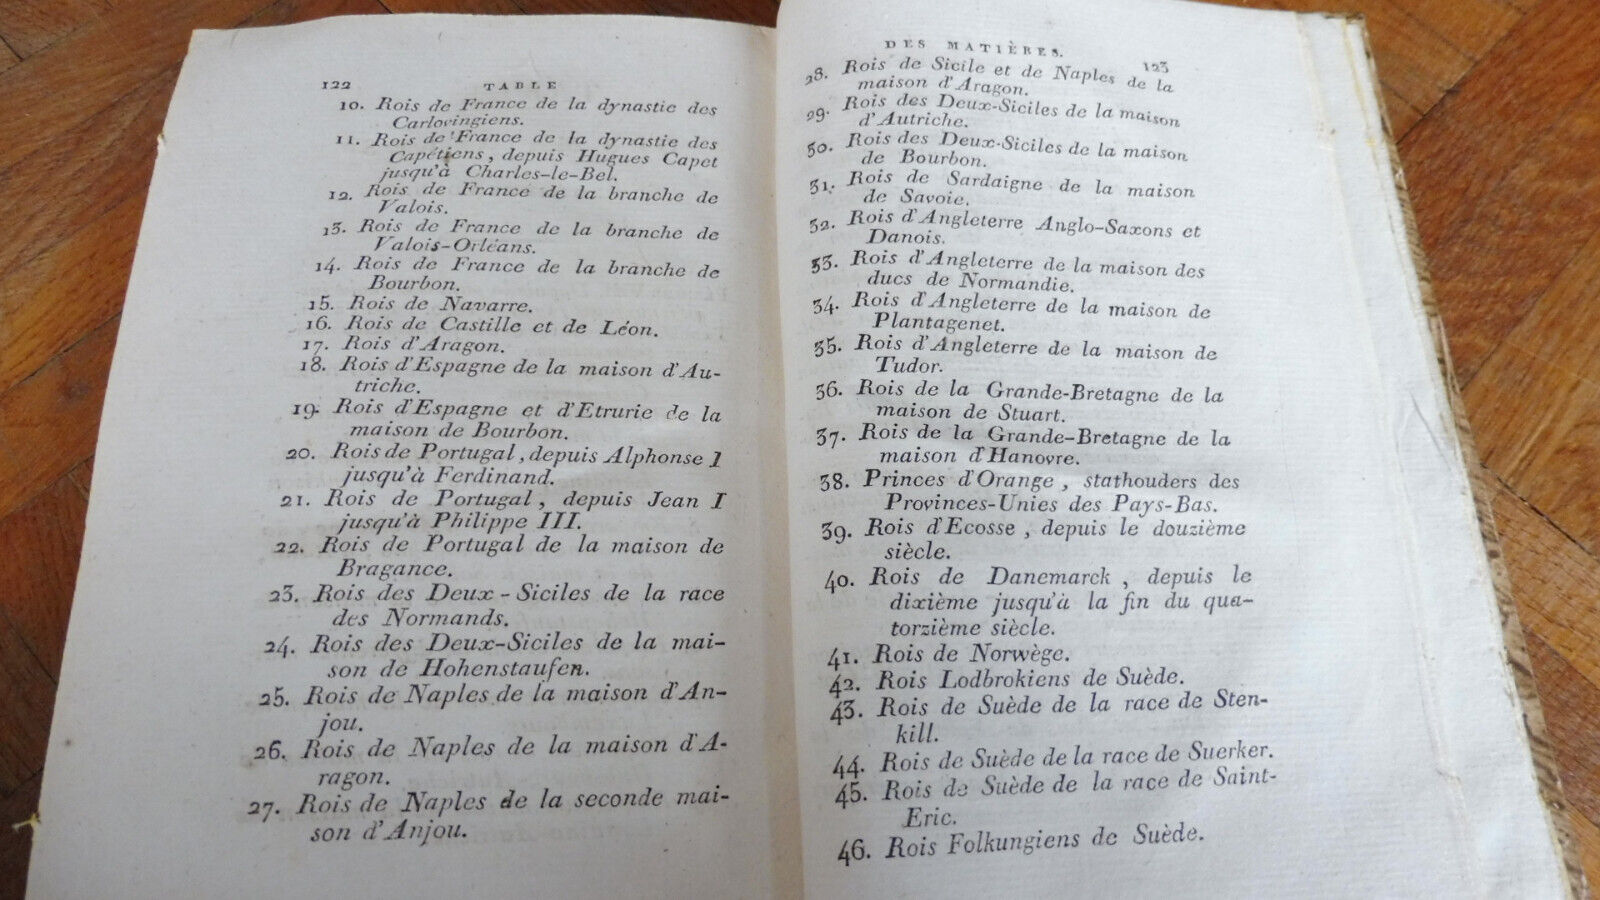 122 TABLE
10. Rois de France de la dynastie des
Carlovingiens.
11. Rois de France de la dynastie des
Capétiens, depuis Hugues Capet
jusqu'à Charles-le-Bel.
12. Rois de France de la branche de
Valois.
13. Rois de France de la branche de
Valois-Orléans.
14. Rois de France de la branche de
Bourbon.
15. Rois de Navarre.
16. Rois de Castille et de Léon.
17. Rois d'Aragon.
18. Rois d'Espagne de la maison d'Au-
triche.
19. Rois d'Espagne et d'Etrurie de la
maison de Bourbon.
20. Rois de Portugal, depuis Alphonse I
jusqu'à Ferdinand.
21. Rois de Portugal, depuis Jean I
jusqu'à Philippe III.
22. Rois de Portugal de la maison de
Bragance.
23. Rois des Deux-Siciles de la race
des Normands.
24. Rois des Deux-Siciles de la mai-
son de Hohenstaufen.
25. Rois de Naples de la maison d'An-
jou.
26. Rois de Naples de la maison d'A-
ragon.
27. Rois de Naples de la seconde mai-
son d'Anjou.
DES MATIÈRES. 123
28. Rois de Sicile et de Naples de la
maison d'Aragon.
29. Rois des Deux-Siciles de la maison
d'Autriche.
30. Rois des Deux-Siciles de la maison
de Bourbon.
31. Rois de Sardaigne de la maison
de Savoie.
32. Rois d'Angleterre Anglo-Saxons et
Danois.
33. Rois d'Angleterre de la maison des
ducs de Normandie.
34. Rois d'Angleterre de la maison de
Plantagenet.
35. Rois d'Angleterre de la maison de
Tudor.
36. Rois de la Grande-Bretagne de la
maison de Stuart.
37. Rois de la Grande-Bretagne de la
maison d'Hanovre.
38. Princes d'Orange, stathouders des
Provinces-Unies des Pays-Bas.
39. Rois d'Ecosse, depuis le douzième
siècle.
40. Rois de Danemarck, depuis le
dixième jusqu'à la fin du qua-
torzième siècle.
41. Rois de Norwège.
42. Rois Lodbrokiens de Suède.
43. Rois de Suède de la race de Sten-
kill.
44. Rois de Suède de la race de Suerker.
45. Rois de Suède de la race de Saint-
Eric.
46. Rois Folkungiens de Suède.